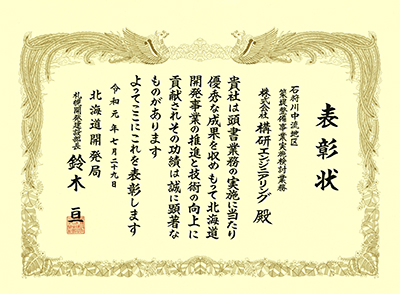 表彰状
石狩川中流地区
築堤整備事業実施検討業務
株式会社 構研エンジニアリング 殿
貴社は頭書業務の実施に当たり
優秀な成果を収めもって北海道
開発事業の推進と技術の向上に
貢献されその功績は誠に顕著な
ものがあります
よってここにこれを表彰します
令和元年七月二十九日
北海道開発局
札幌開発建設部長 鈴木 亘